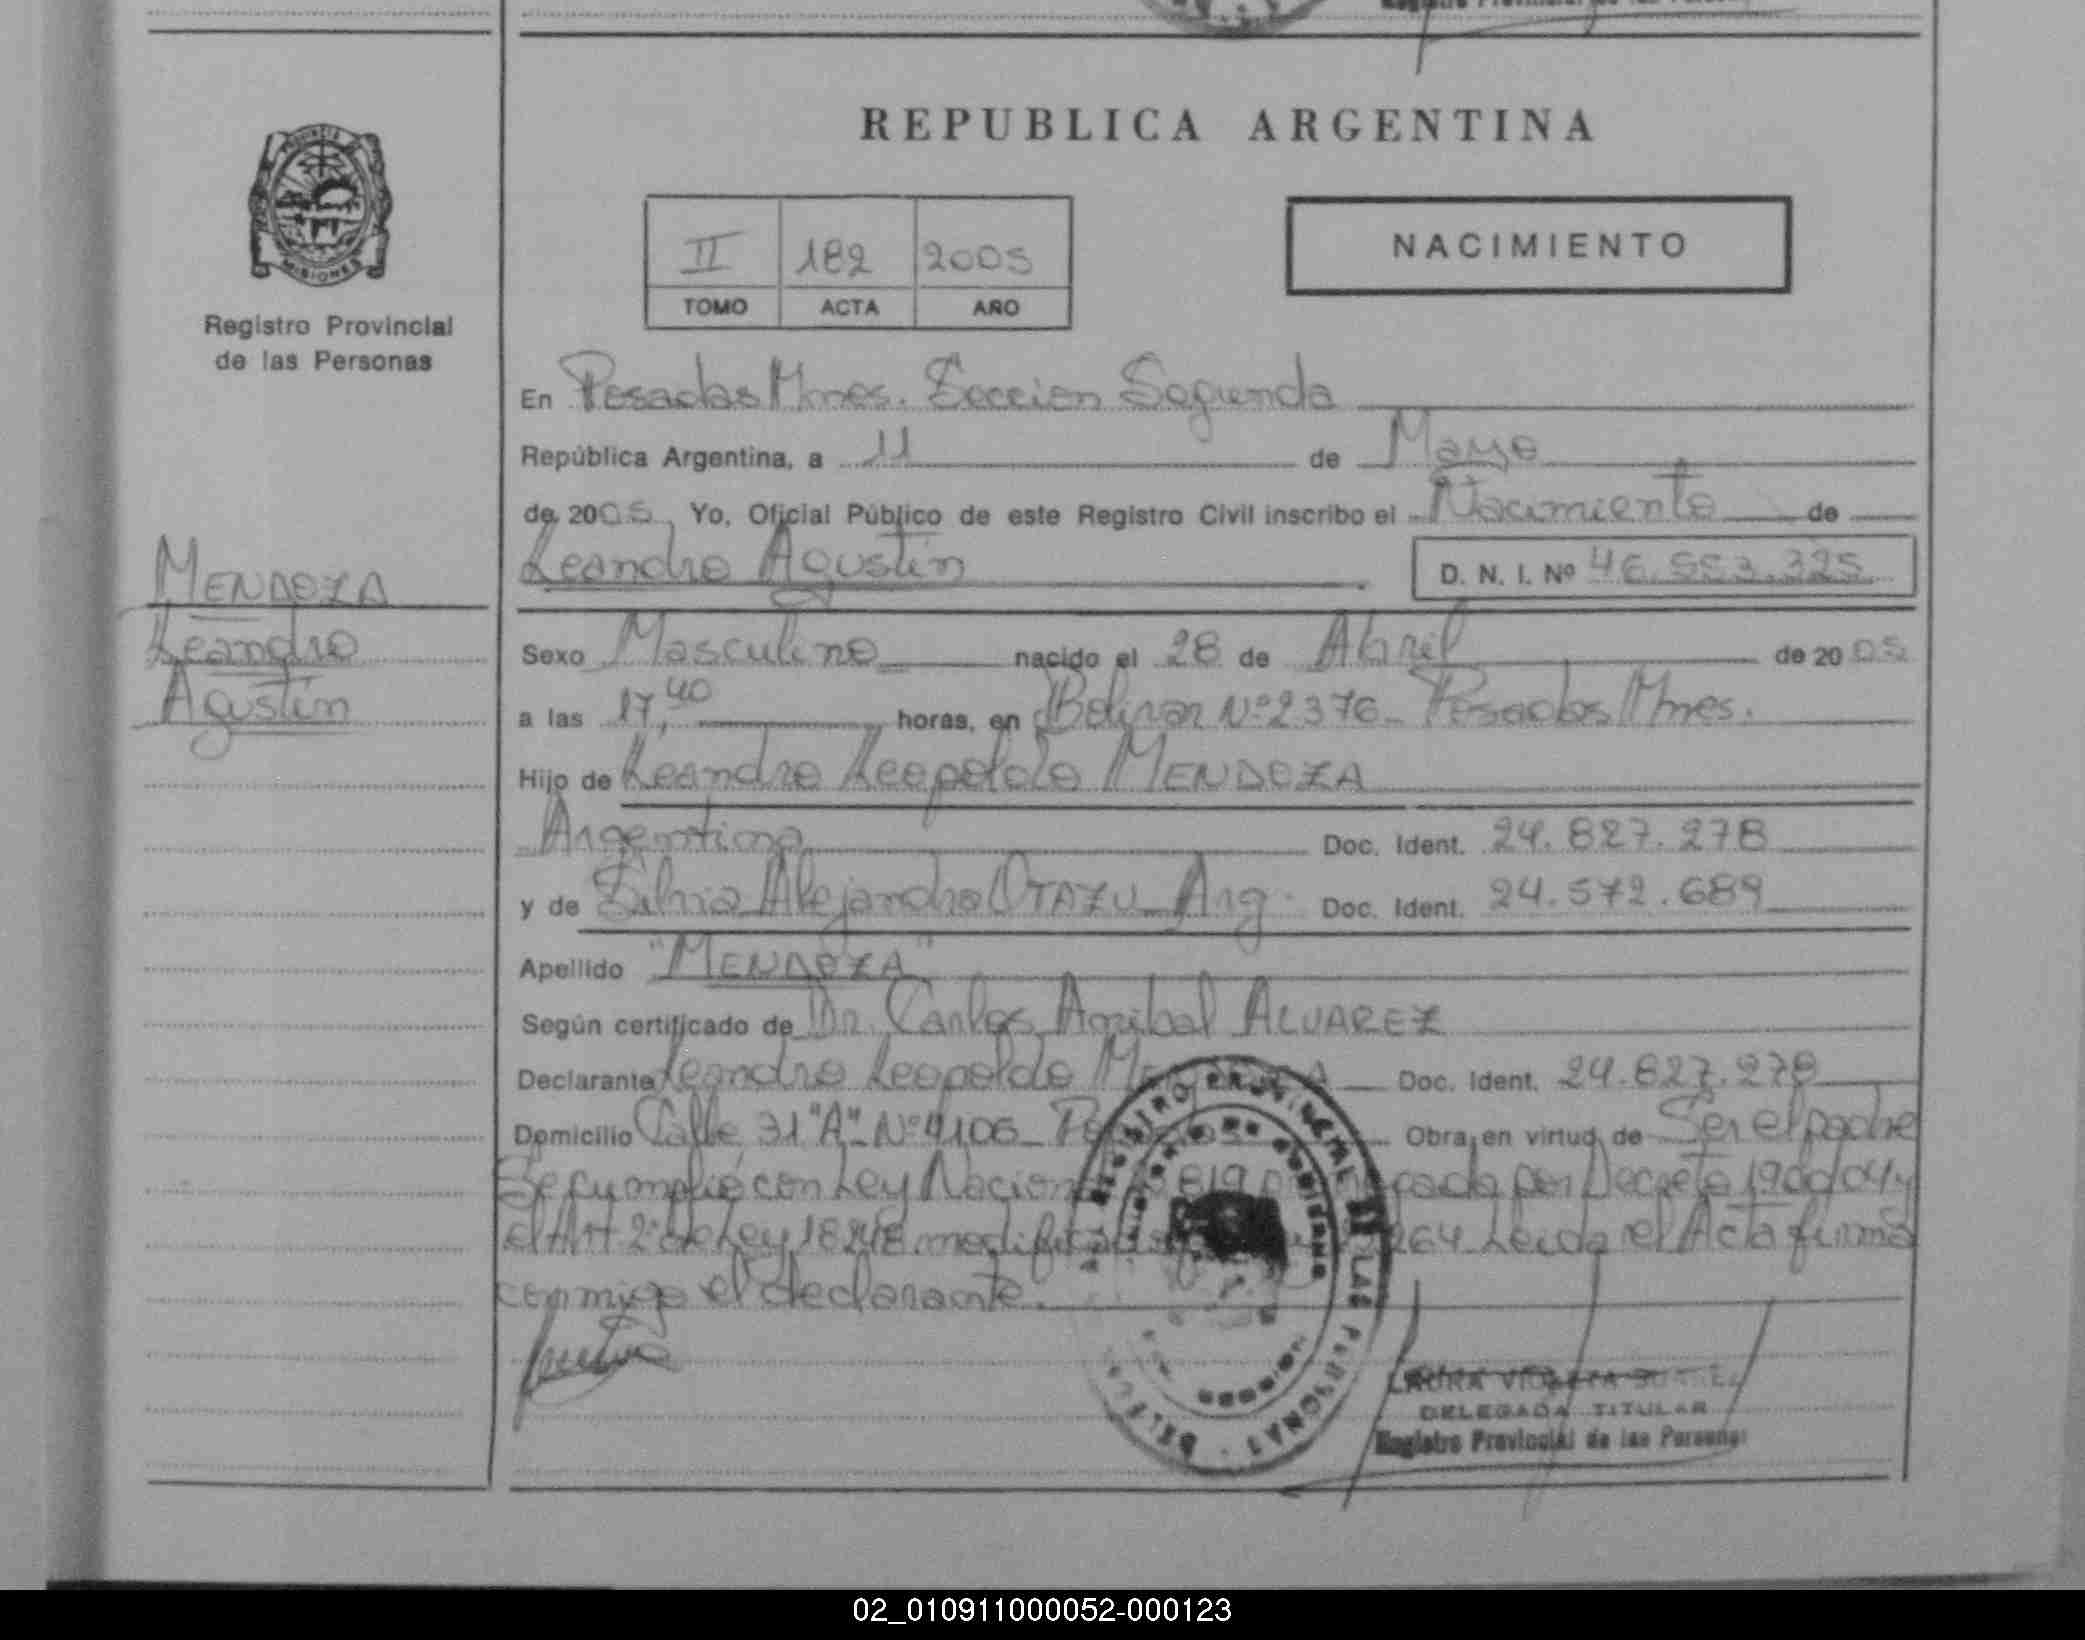 REPUBLICA ARGENTINA
PROVINCIA
MISIONES
Registro Provincial
de las Personas
II 182 2005
TOMO ACTA AÑO
NACIMIENTO
En Posadas Mnes. Sección Segunda
República Argentina, a 11 de Mayo
de 2005, Yo, Oficial Público de este Registro Civil inscribo el Nacimiento de
Leandro Agustín D. N. I. Nº 46.553.325
MENDOZA
Leandro
Agustín
Sexo Masculino nacido el 28 de Abril de 2005
a las 17,40 horas, en Bolivar Nº 2376 Posadas Mnes.
Hijo de Leandro Leopoldo MENDOZA
Argentino Doc. Ident. 24.827.278
y de Silvia Alejandra OTAZU Arg. Doc. Ident. 24.572.689
Apellido "MENDOZA"
Según certificado de Dr. Carlos Anibal ALVAREZ
Declarante Leandro Leopoldo Doc. Ident. 24.827.278
Domicilio Calle 31 "A" Nº 4106 Obra, en virtud de Ser el padre
Se cumplió con Ley por Decreto
el Art 2º de Ley 18248 264 Leida el Acta firma
conmigo el declarante.
REGISTRO PROVINCIAL DE LAS PERSONAS
DELEGADA TITULAR
Registro Provincial de las Personas
02_010911000052-000123